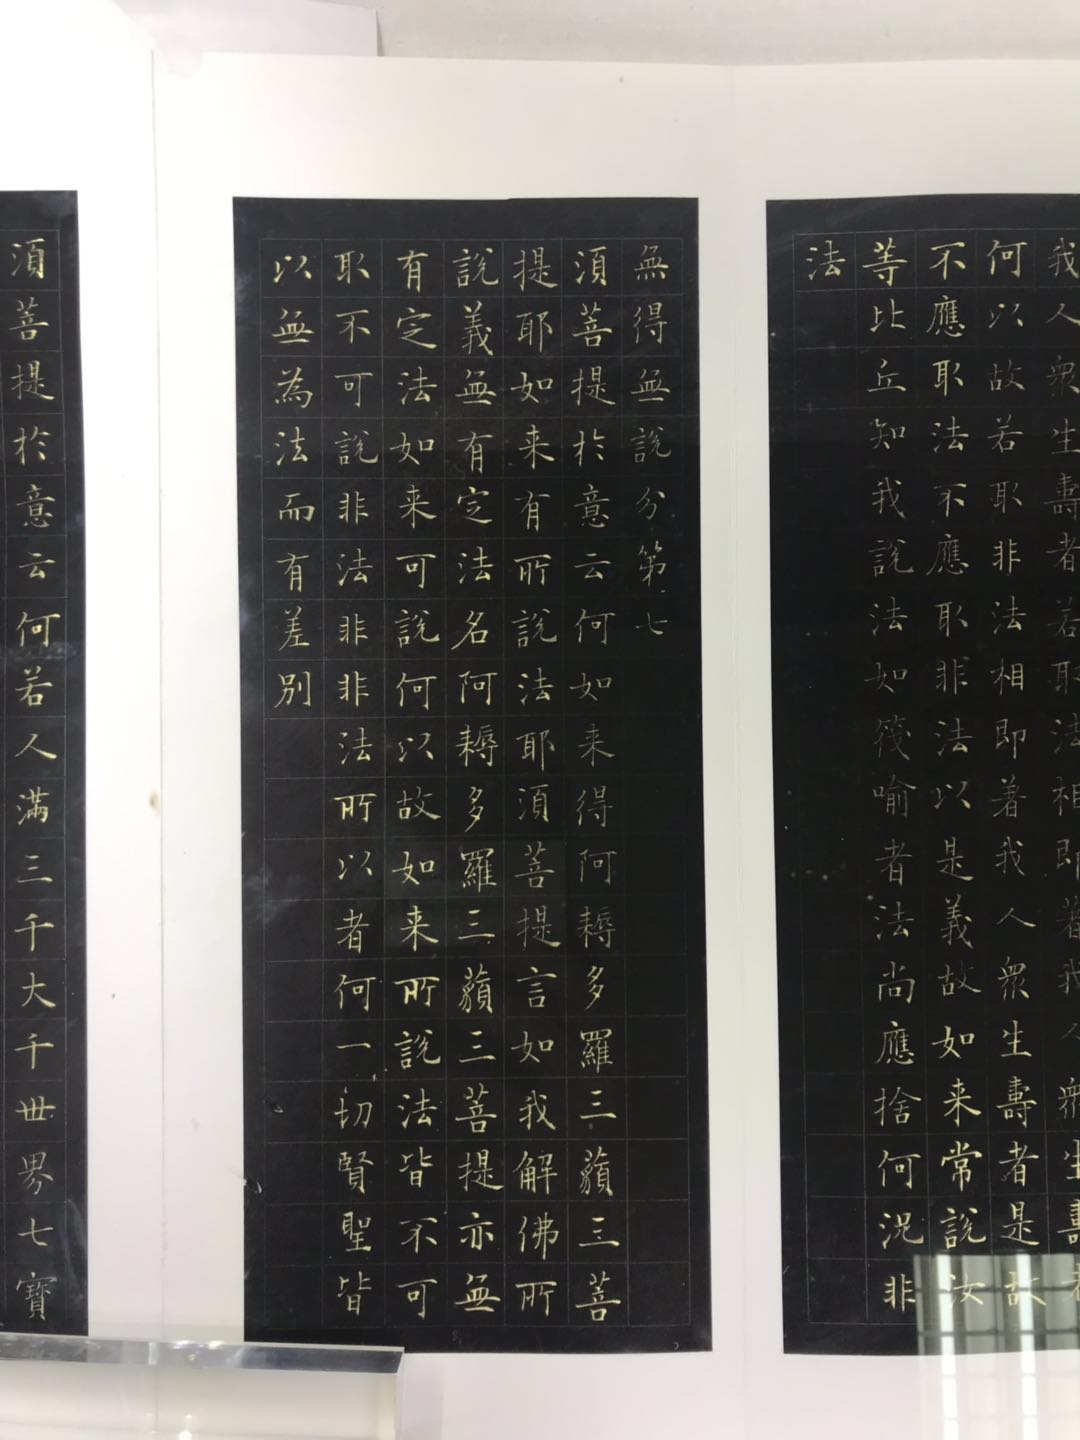 我人衆生壽者若取法相即著我人衆生壽者
何以故若取非法相即著我人衆生壽者是故
不應取法不應取非法以是義故如来常說汝
等比丘知我說法如筏喻者法尚應捨何況非
法
無得無說分第七
須菩提於意云何如来得阿耨多羅三藐三菩
提耶如来有所說法耶須菩提言如我解佛所
說義無有定法名阿耨多羅三藐三菩提亦無
有定法如来可說何以故如来所說法皆不可
取不可說非法非非法所以者何一切賢聖皆
以無為法而有差別
須菩提於意云何若人滿三千大千世界七寶